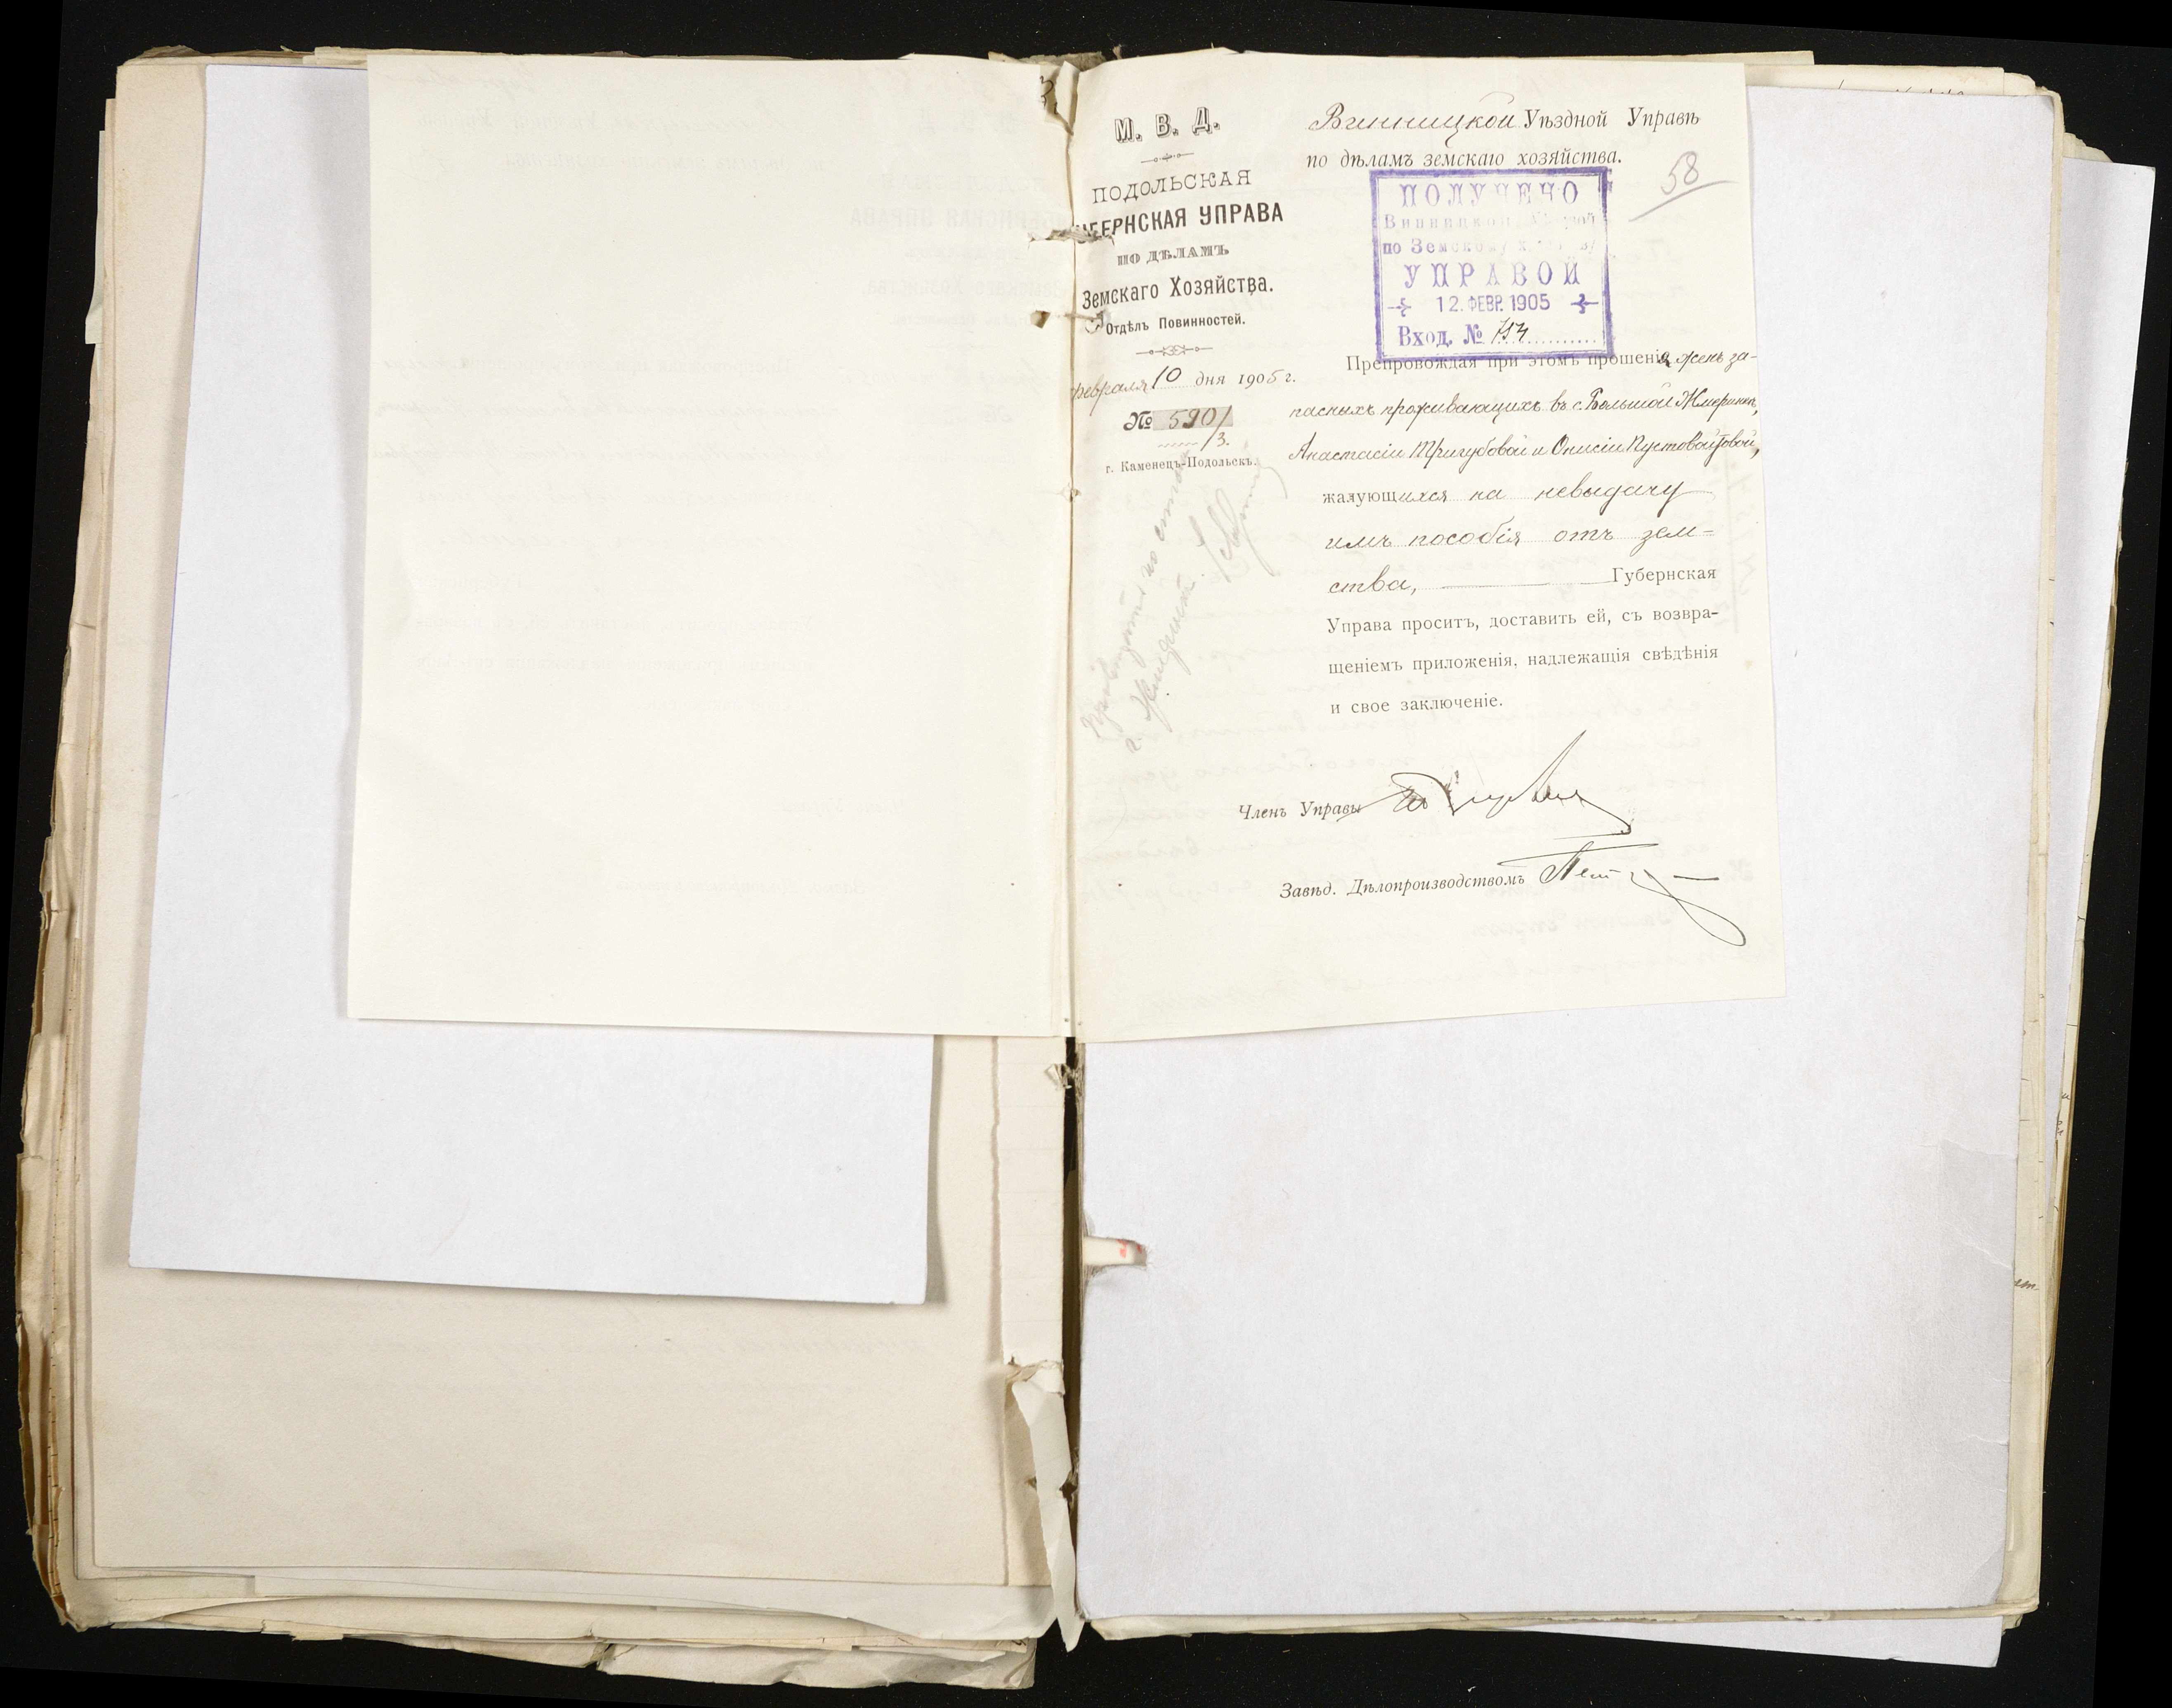 М. В. Д.
ПОДОЛЬСКАЯ
БЕРНСКАЯ УПРАВА
ПО ДѢЛАМЪ
Земскаго Хозяйства.
Отдѣлъ Повинностей.
февраля 10 дня 1905 г.
№ 590/
/3.
г. Каменецъ-Подольскъ.
Винницкой Уѣздной Управѣ
по дѣламъ земскаго хозяйства.
58
ПОЛУЧЕНО
Винницкой
по Земскому
УПРАВОЙ
12. ФЕВР. 1905
Вход. №
Препровождая при этомъ прошенія женъ за-
пасныхъ проживающихъ въ с. Большой Жмеринкѣ,
Анастасіи Тригубовой и Онисіи Пустовойтовой,
жалующихся на невыдачу
имъ пособія отъ зем=
ства, Губернская
Управа проситъ, доставить ей, съ возвра-
щеніемъ приложенія, надлежащія свѣдѣнія
и свое заключеніе.
Членъ Управы
Завѣд. Дѣлопроизводствомъ